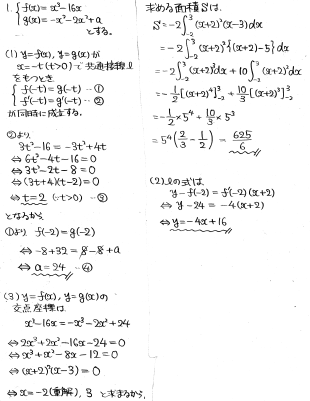 1. { f(x) = x³-16x
g(x) = -x³-2x²+a
とする。
(1) y=f(x), y=g(x) が
x=-t (t>0) で共通接線l
をもつとき
{ f(-t)=g(-t) …①
f'(-t)=g'(-t) …②
が同時に成立する。
②より
3t²-16 = -3t²+4t
⇔ 6t²-4t-16=0
⇔ 3t²-2t-8=0
⇔ (3t+4)(t-2)=0
⇔ t=2 (∵t>0) …③
となるから
①より f(-2)=g(-2)
⇔ -8+32 = 8-8+a
⇔ a=24 …④
(3) y=f(x), y=g(x)の
交点座標は
x³-16x = -x³-2x²+24
⇔ 2x³+2x²-16x-24=0
⇔ x³+x²-8x-12=0
⇔ (x+2)²(x-3)=0
⇔ x=-2(重解), 3 と求まるから、
求める面積Sは、
S = -2∫₋₂³ (x+2)²(x-3)dx
= -2∫₋₂³ (x+2)²{(x+2)-5}dx
= -2∫₋₂³ (x+2)³dx + 10∫₋₂³ (x+2)²dx
= -1/2[(x+2)⁴]₋₂³ + 10/3[(x+2)³]₋₂³
= -1/2×5⁴ + 10/3×5³
= 5⁴(2/3 - 1/2) = 625/6
(2) lの式は
y-f(-2) = f'(-2)(x+2)
⇔ y-24 = -4(x+2)
⇔ y=-4x+16